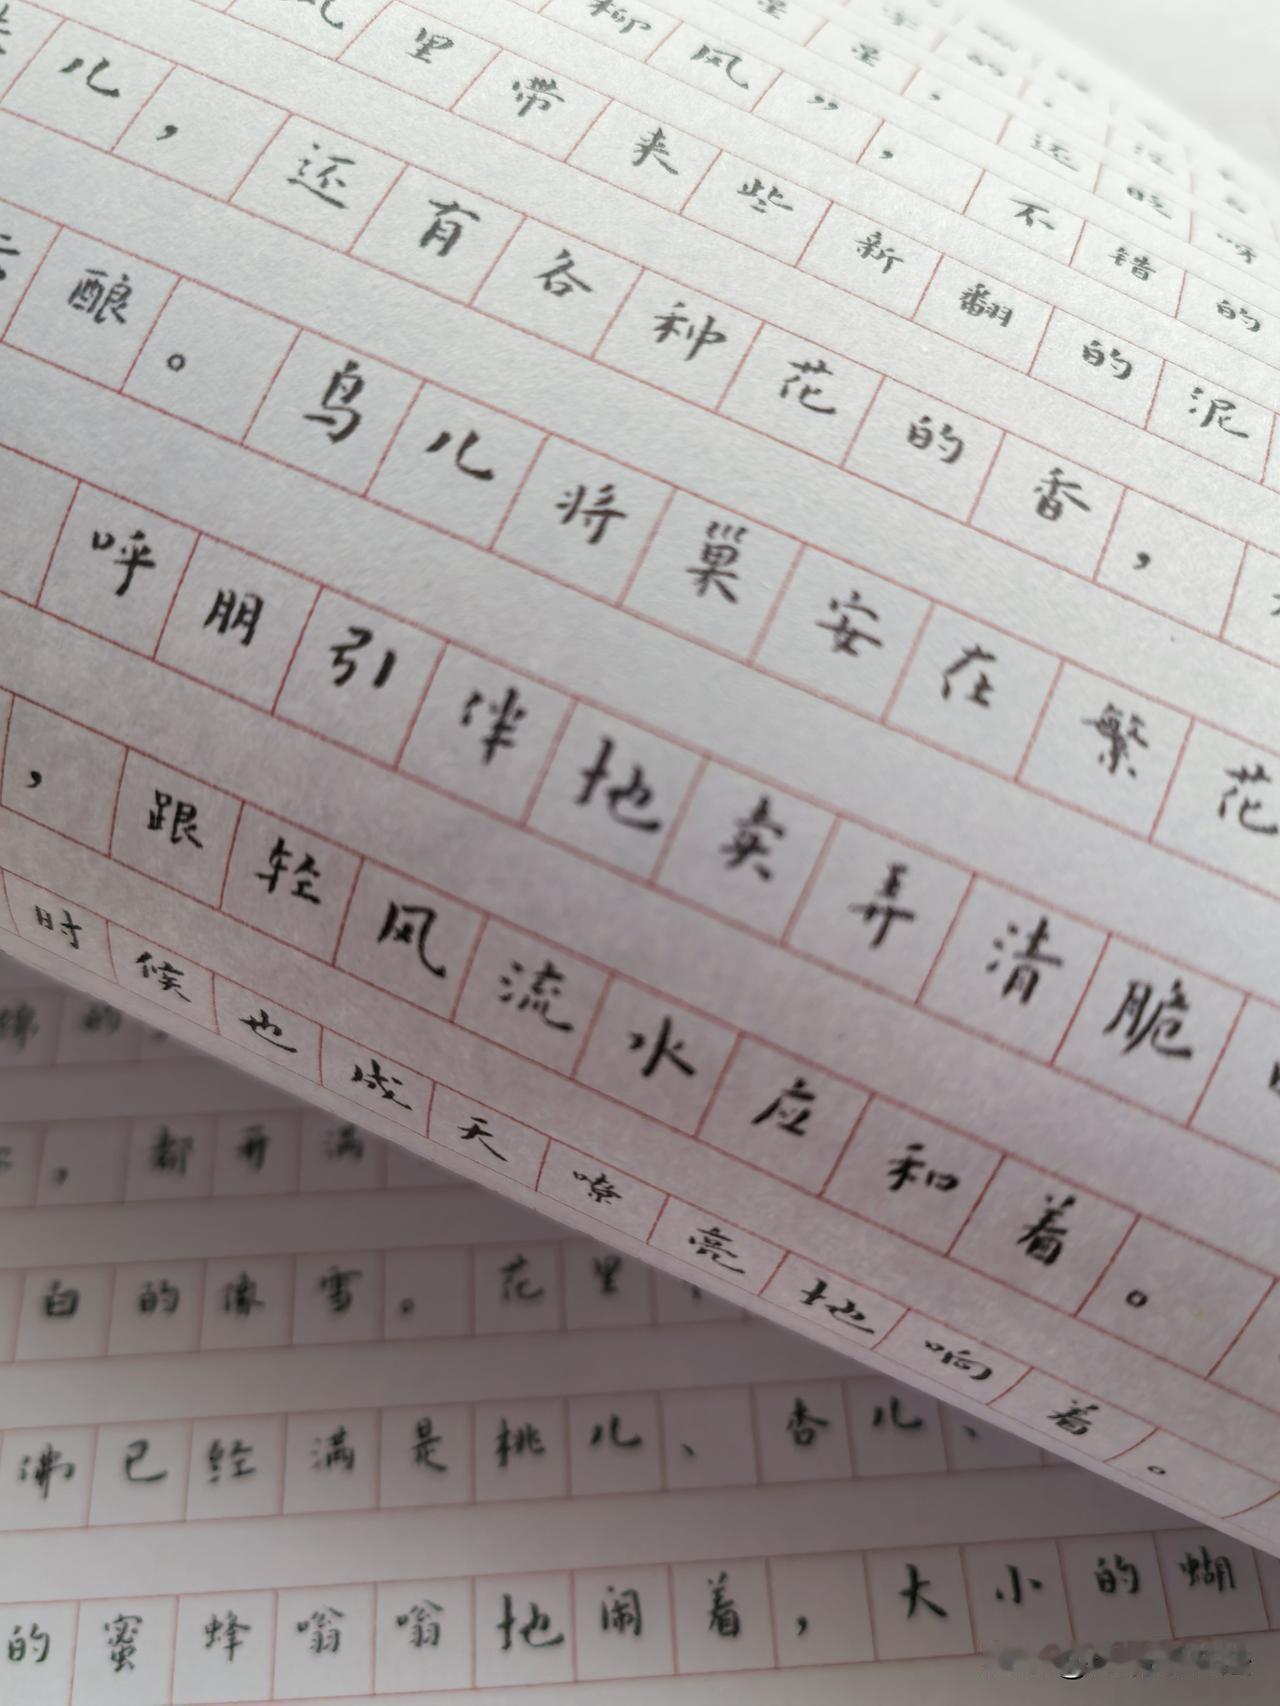 柳风”，不错的
风里带来些新翻的泥
儿，还有各种花的香，
酿。鸟儿将巢安在繁花
呼朋引伴地卖弄清脆
，跟轻风流水应和着。
时候也成天嘹亮地响着。
绵的
，都开满
白的像雪。花里
佛已经满是桃儿、杏儿、
的蜜蜂嗡嗡地闹着，大小的蝴